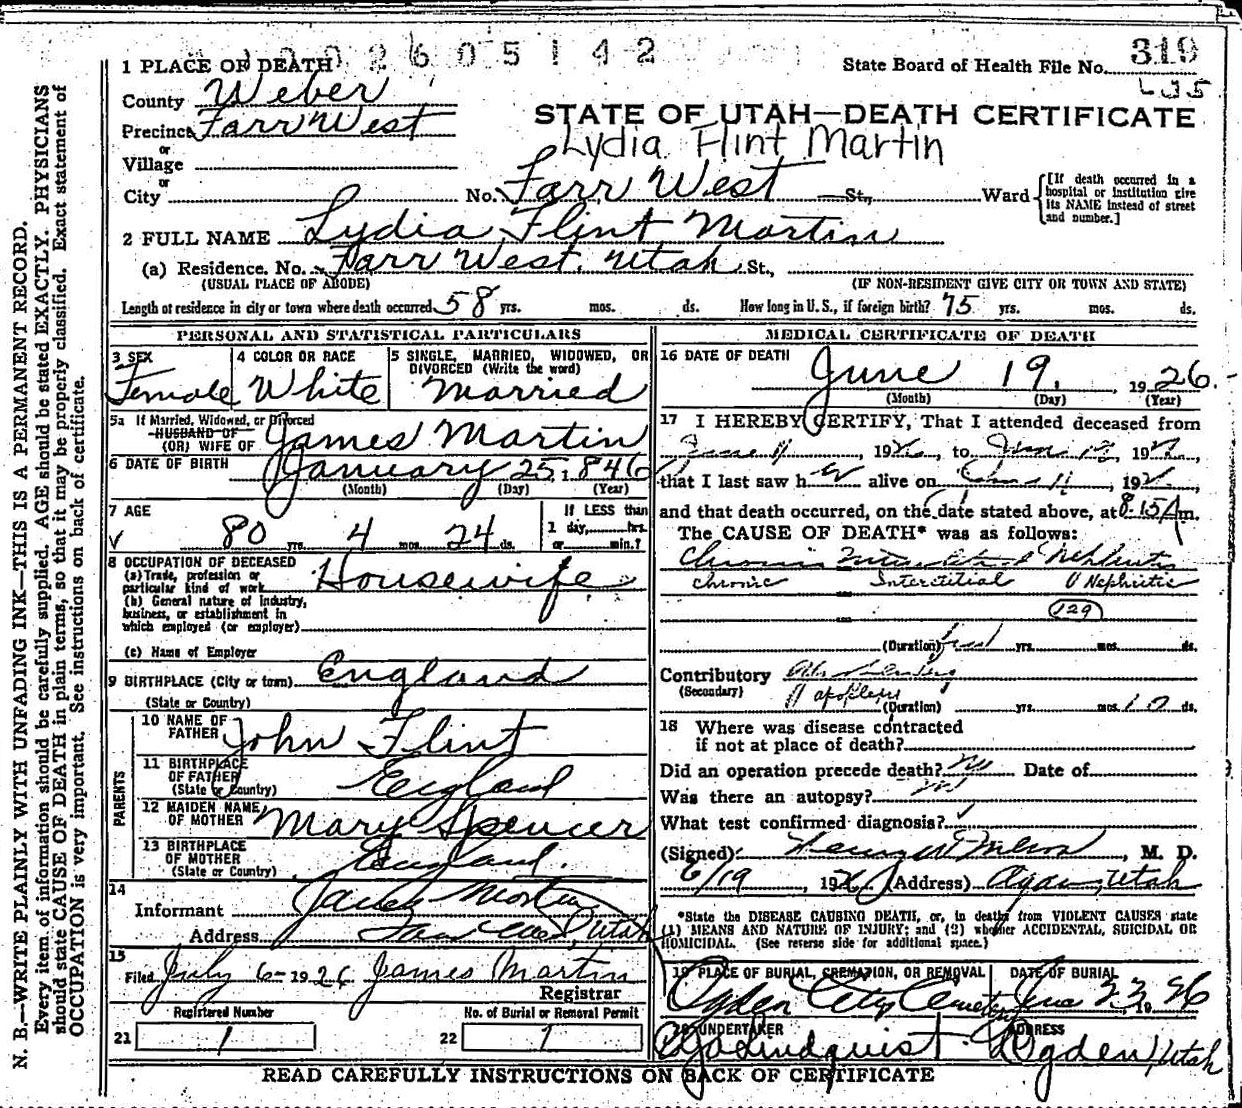 2605142
319
1 PLACE OF DEATH
State Board of Health File No.
County Weber
STATE OF UTAH—DEATH CERTIFICATE
Precinct Farr West
Lydia Flint Martin
or
Village
or
City No. Farr West St., Ward
[If death occurred in a hospital or institution give its NAME instead of street and number.]
2 FULL NAME Lydia Flint Martin
(a) Residence. No. Farr West, Utah St.,
(USUAL PLACE OF ABODE) (IF NON-RESIDENT GIVE CITY OR TOWN AND STATE)
Length of residence in city or town where death occurred 58 yrs. mos. ds. How long in U. S., if foreign birth? 75 yrs. mos. ds.
PERSONAL AND STATISTICAL PARTICULARS
3 SEX Female
4 COLOR OR RACE White
5 SINGLE, MARRIED, WIDOWED, OR DIVORCED (Write the word) Married
5a If Married, Widowed, or Divorced
HUSBAND OF
(OR) WIFE OF James Martin
6 DATE OF BIRTH January 25, 1846
(Month) (Day) (Year)
7 AGE 80 yrs. 4 mos. 24 ds.
If LESS than
1 day, hrs.
or min.?
8 OCCUPATION OF DECEASED
(a) Trade, profession or
particular kind of work Housewife
(b) General nature of industry,
business, or establishment in
which employed (or employer)
(c) Name of Employer
9 BIRTHPLACE (City or town) England
(State or Country)
PARENTS
10 NAME OF FATHER John Flint
11 BIRTHPLACE OF FATHER England
(State or Country)
12 MAIDEN NAME OF MOTHER Mary Spencer
13 BIRTHPLACE OF MOTHER England.
(State or Country)
14
Informant James Martin
Address Farr West, Utah
15
Filed July 6 - 1926 James Martin
Registrar
Registered Number
21 1
No. of Burial or Removal Permit
22 1
MEDICAL CERTIFICATE OF DEATH
16 DATE OF DEATH
June 19, 1926.
(Month) (Day) (Year)
17 I HEREBY CERTIFY, That I attended deceased from
June 11, 192 , to June , 192 ,
that I last saw her alive on June 11, 192 ,
and that death occurred, on the date stated above, at 8:15 A m.
The CAUSE OF DEATH* was as follows:
Chronic Interstitial Nephritis
Chronic Interctitial Nephritic
129
(Duration) yrs. mos. ds.
Contributory
(Secondary) apoplexy
(Duration) yrs. mos. 10 ds.
18 Where was disease contracted
if not at place of death?
Did an operation precede death? No Date of
Was there an autopsy? No
What test confirmed diagnosis?
(Signed) , M. D.
6/19, 1926 (Address) Ogden, Utah
*State the DISEASE CAUSING DEATH, or, in deaths from VIOLENT CAUSES state
(1) MEANS AND NATURE OF INJURY; and (2) whether ACCIDENTAL, SUICIDAL OR
HOMICIDAL. (See reverse side for additional space.)
19 PLACE OF BURIAL, CREMATION, OR REMOVAL
Ogden City Cemetery
DATE OF BURIAL
June 23 1926
20 UNDERTAKER
Lindquist
ADDRESS
Ogden, Utah
READ CAREFULLY INSTRUCTIONS ON BACK OF CERTIFICATE
N. B.—WRITE PLAINLY WITH UNFADING INK—THIS IS A PERMANENT RECORD.
Every item of information should be carefully supplied. AGE should be stated EXACTLY. PHYSICIANS
should state CAUSE OF DEATH in plain terms, so that it may be properly classified. Exact statement of
OCCUPATION is very important. See instructions on back of certificate.